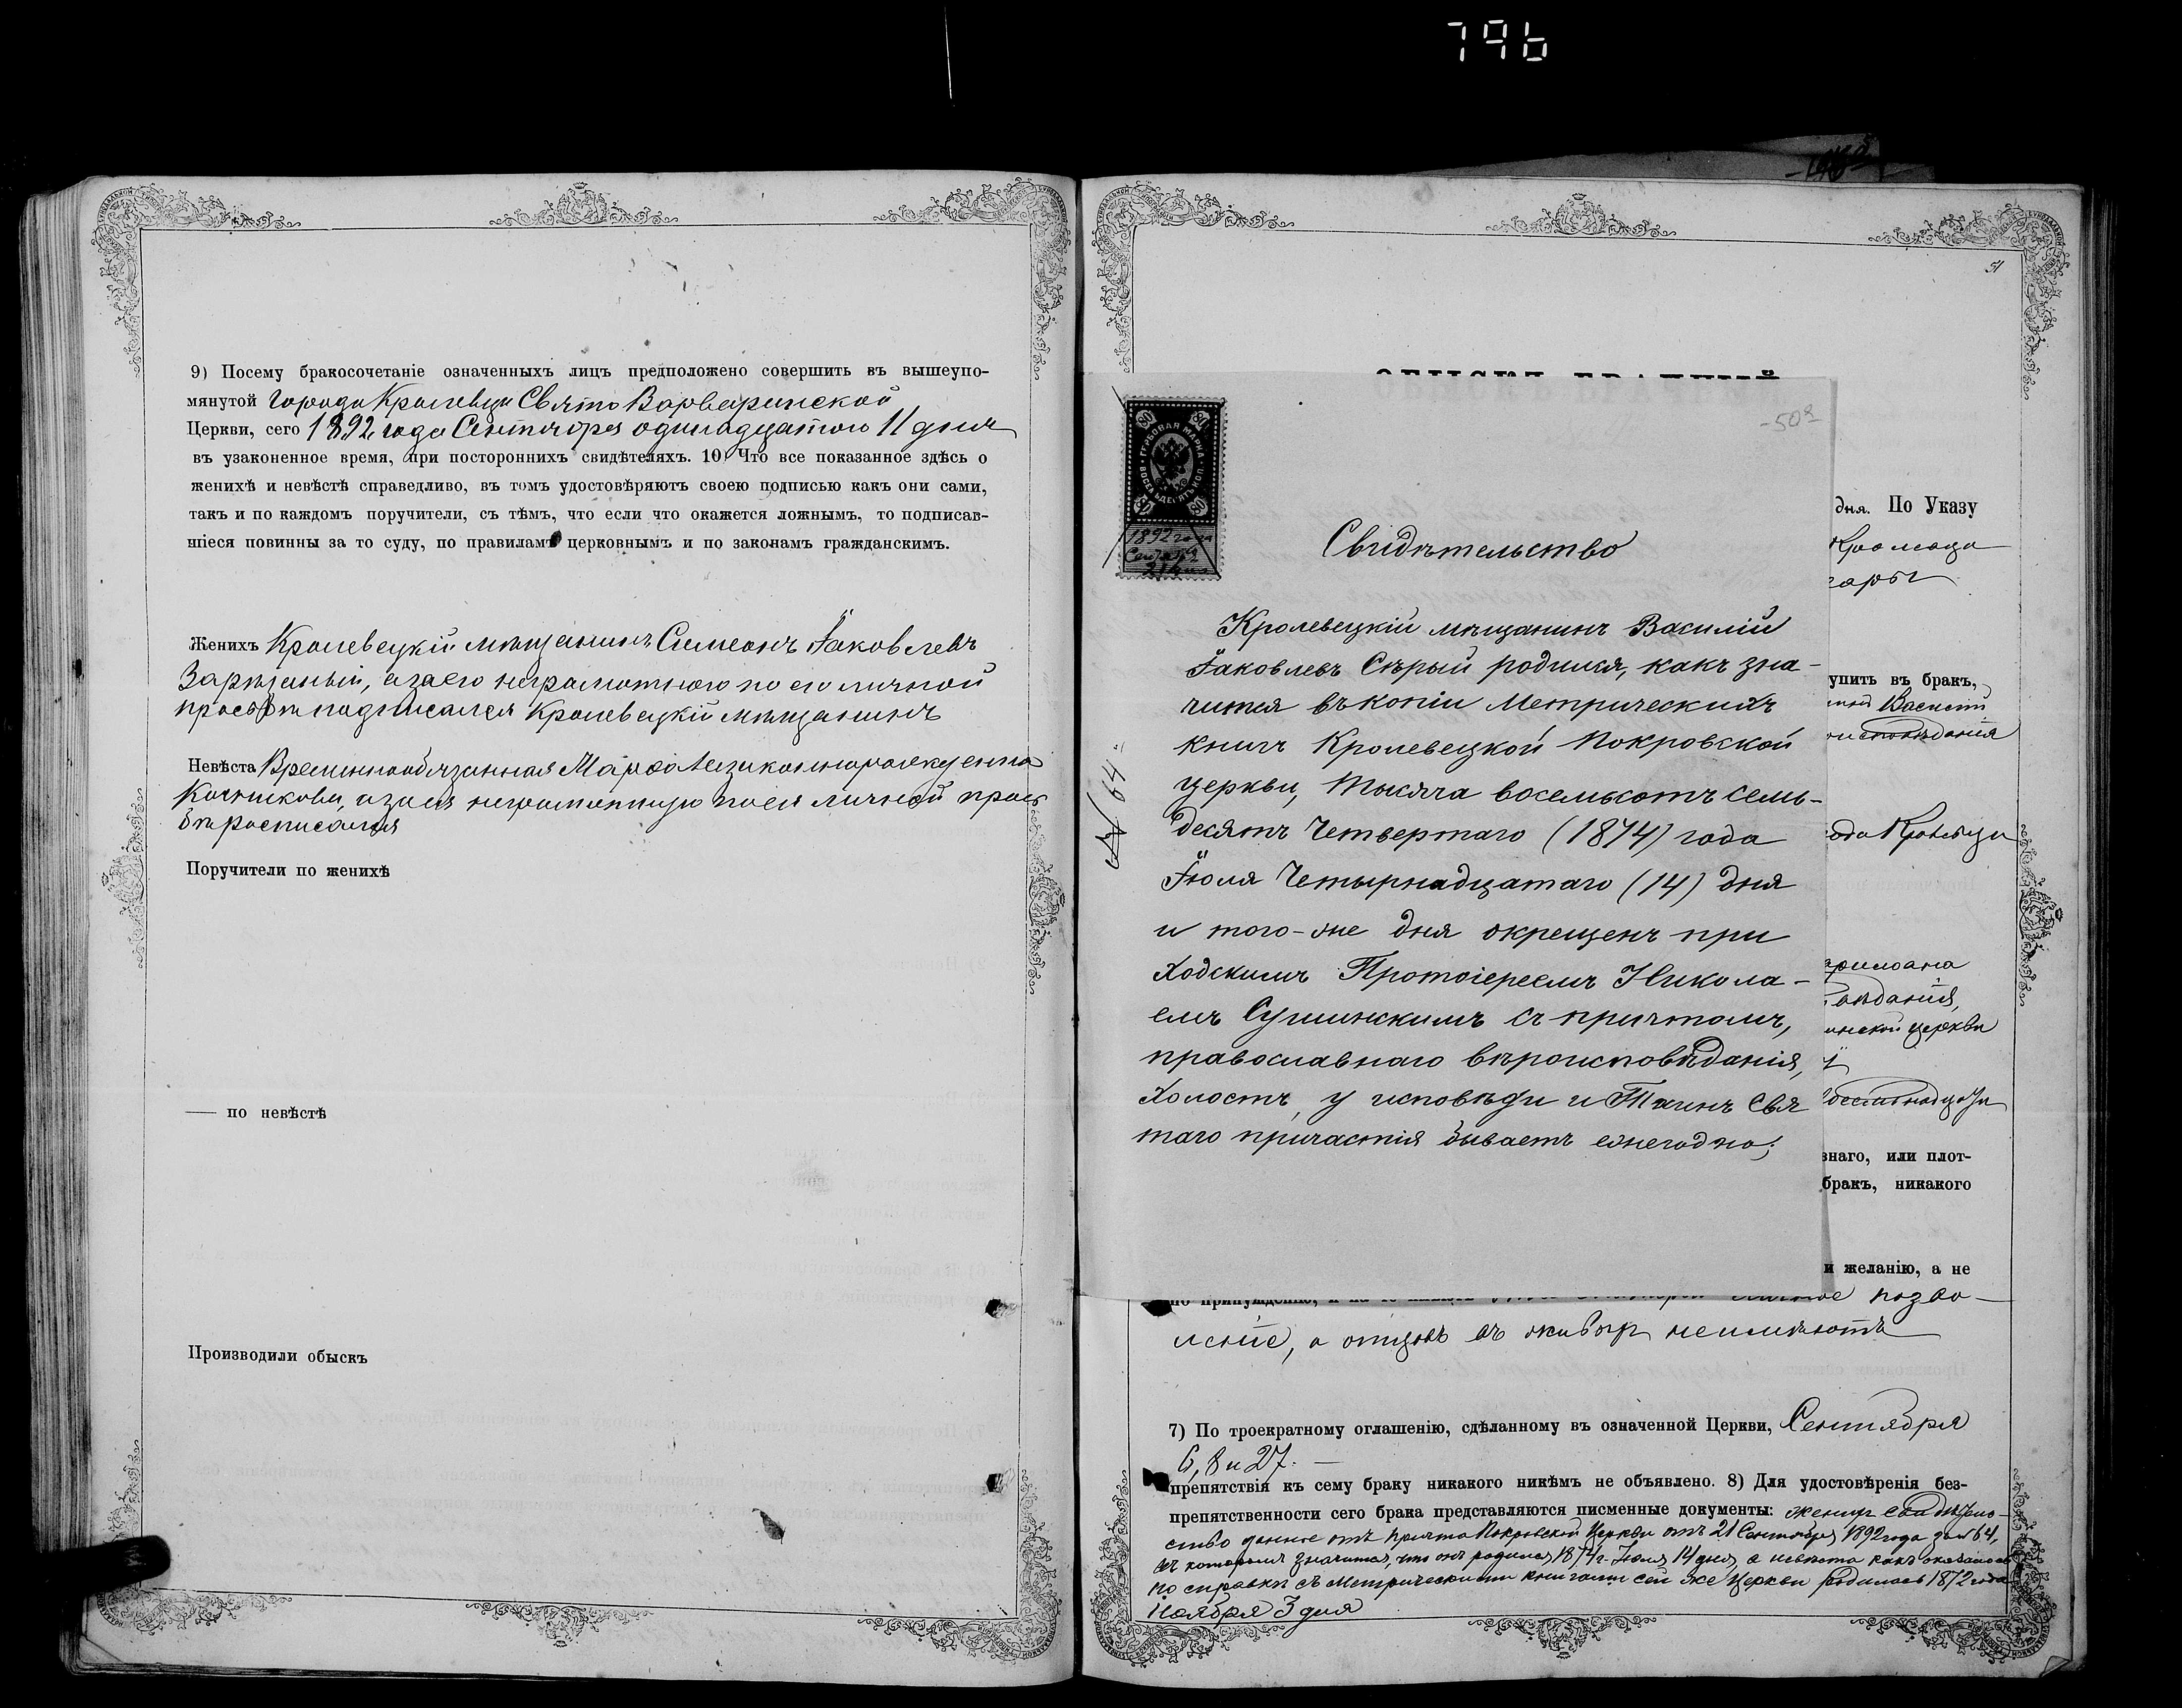 796
9) Посему бракосочетаніе означенныхъ лицъ предположено совершить въ вышеупо-
мянутой Города Кролевца Свято Варваринской
Церкви, сего 1892 года Сентября одинадцатого 11 дня
въ узаконенное время, при постороннихъ свидѣтеляхъ. 10) Что все показанное здѣсь о
женихѣ и невѣстѣ справедливо, въ томъ удостовѣряютъ своею подписью какъ они сами,
такъ и по каждомъ поручители, съ тѣмъ, что если что окажется ложнымъ, то подписав-
шіеся повинны за то суду, по правиламъ церковнымъ и по законамъ гражданскимъ.
Женихъ Кролевецкій мѣщанинъ Симеонъ Іаковлевъ
а за его неграмотного по его личной
прозьбѣ подписался Кролевецкій мѣщанинъ
Невѣста Временнообязанная Марѳа
а за ея неграмотную по ея личной прозь
бѣ росписался
Поручители по женихѣ
— по невѣстѣ
Производили обыскъ
51
-50ª
80 80
ГЕРБОВАЯ МАРКА
ВОСЕМЬДЕСЯТЪ КОП.
80 80
1892 года
Свидѣтельство
№ 64
Кролевецкій мѣщанинъ Василій
Іаковлевъ Сѣрый родился, какъ зна-
чится въ копіи Метрическихъ
книгъ Кролевецкой Покровской
церкви, тысяча восемьсотъ семь-
десятъ Четвертаго (1874) года
Іюля Четырнадцатаго (14) дня
и того-же дня окрещенъ при
ходскимъ Протоіереемъ Никола-
емъ Сушинскимъ съ причтомъ,
православнаго вѣроисповѣданія,
холостъ, у исповѣди и Таинъ Свя
таго причастія бываетъ ежегодно;
дня. По Указу
упить въ бракъ,
Василій
ода Кролевца
инской церкви
знаго, или плот-
бракъ, никакого
и желанію, а не
по принужденію, позво-
леніе, а отцовъ въ живыхъ неимѣютъ
7) По троекратному оглашенію, сдѣланному въ означенной Церкви, Сентября
6, 8 и 27.
препятствія къ сему браку никакого никѣмъ не объявлено. 8) Для удостовѣренія без-
препятственности сего брака представляются писменные документы: жених свидѣтель-
ство данное отъ причта Покровской Церкви отъ 21 Сентября 1892 года за №64,
въ которомъ значится, что онъ родился 1874 г. Іюля 14 дня, а невѣста какъ оказалось
по справкѣ съ Метрическими книгами сей же Церкви родилась 1872 года
Ноября 3 дня